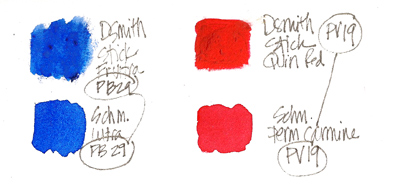 DSmith
Stick
Ultra
PB29
Schm.
Ultra
PB 29
DSmith
Stick
Quin Red
PV19
Schm.
Perm Carmine
PV19